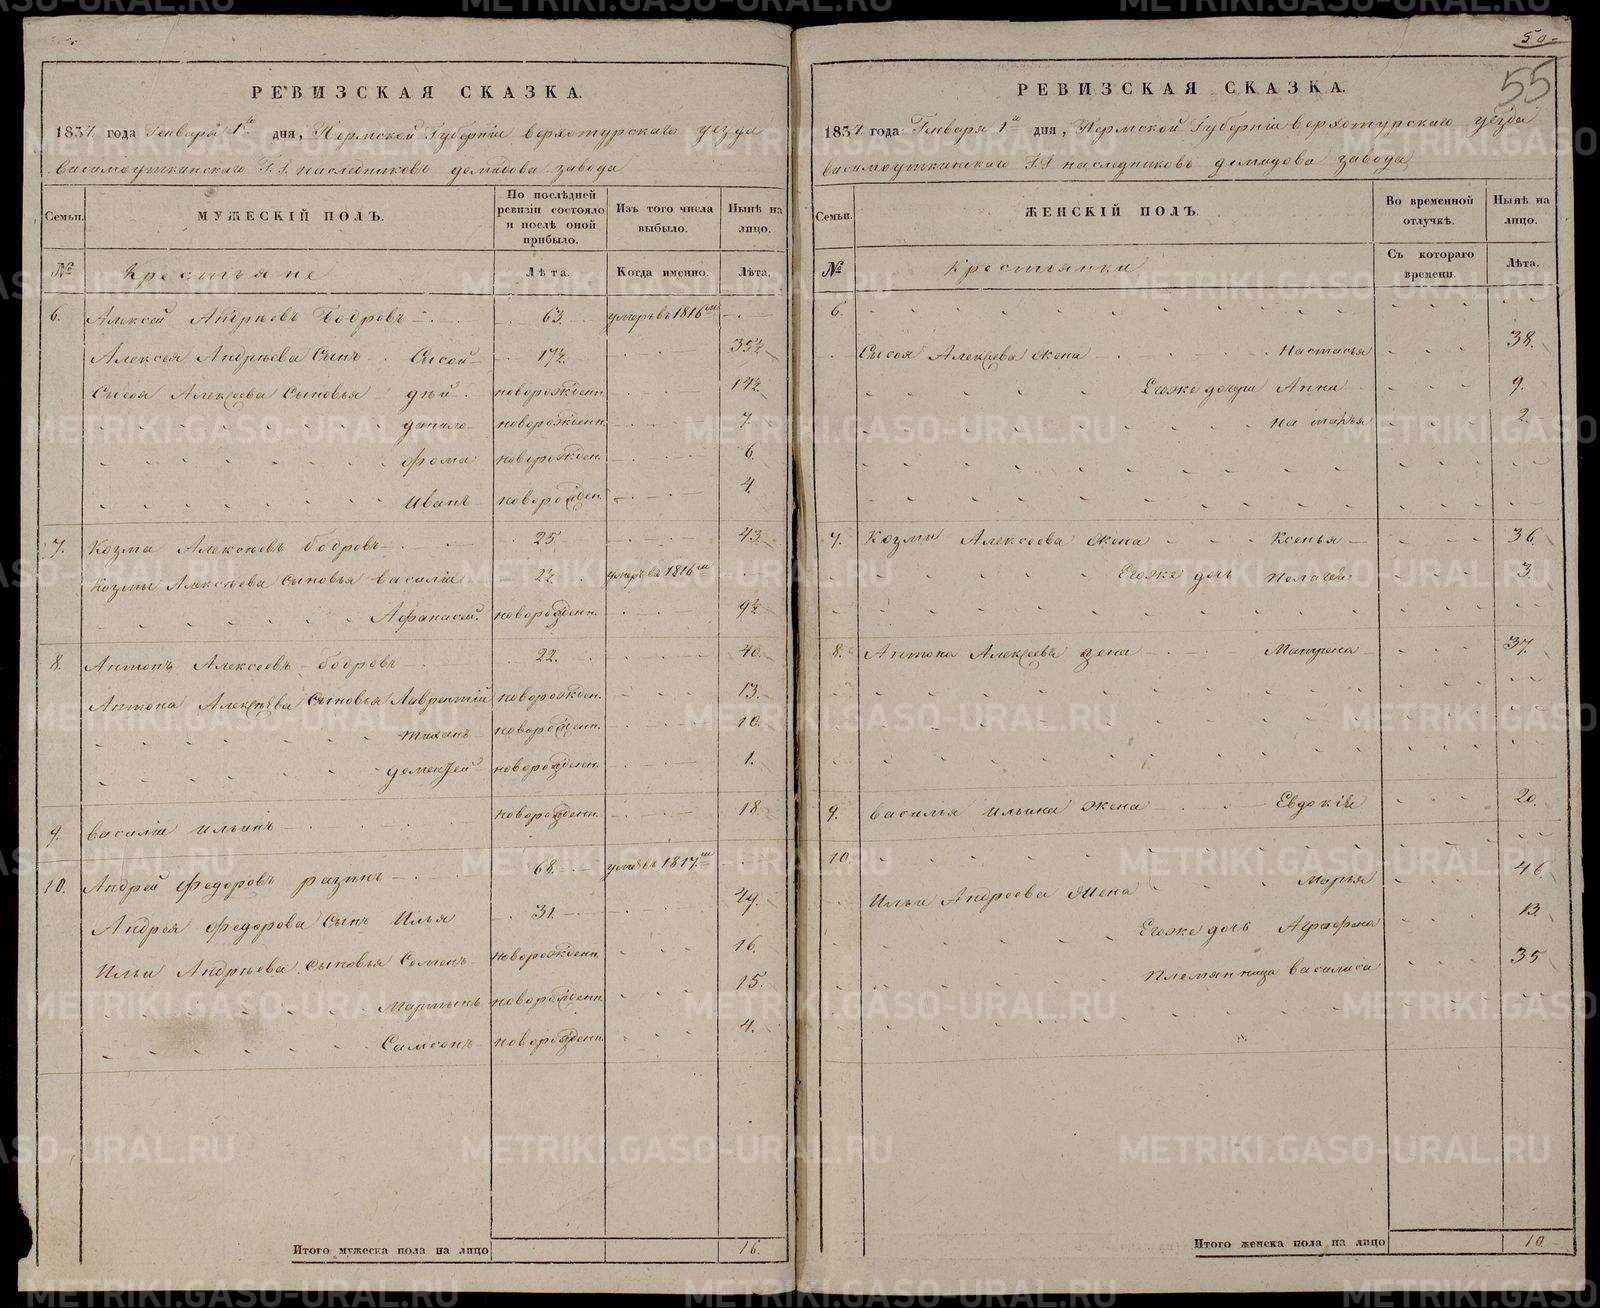 50-
55
РЕВИЗСКАЯ СКАЗКА.
1834 года Генваря 1го дня, Пермской Губерніи верхотурскаго уезда
висимоуткинскаго Г.Г. наследниковъ демидова завода
Семьи. МУЖЕСКІЙ ПОЛЪ. По послѣдней ревизіи состояло и послѣ оной прибыло. Изъ того числа выбыло. Нынѣ на лицо.
№ Крестьяне Лѣта. Когда именно. Лѣта.
6. Алексей Андрѣевъ Бодровъ 63. умеръ въ 1816м
Алексея Андрѣева Сынъ Сысой 17½ 35½
Сысоя Алексеева Сыновья дѣй новорожденн. 14½
данило новорожденн. 7.
фома новорожден. 6.
Иванъ новорожден. 4.
7. Козма Алексѣевъ бодровъ 25. 43.
Козмы Алексѣева сыновья василіи 2½ умеръ въ 1816м
Афанасей. новорожденн. 9½
8. Антонъ Алексеевъ бодровъ 22. 40.
Антона Алексѣева Сыновья Лаврентій новорожден. 13.
тиханъ новорожденн. 10.
дементей новорожденн. 1.
9. василіи ильинъ новорожденн. 18.
10. Андрей федоровъ разинъ 68. умеръ въ 1817м
Андрея федорова Сынъ Илья 31. 49.
Ильи Андрѣева Сыновья Семенъ новорожденн. 16.
Мартынъ новорожденн. 15.
Самсонъ новорожденн. 4.
Итого мужеска пола на лицо 16.
РЕВИЗСКАЯ СКАЗКА.
1834 года Генваря 1го дня, Пермской Губерніи верхотурскаго уезда
висимоуткинскаго Г.Г. наследниковъ демидова завода
Семьи. ЖЕНСКІЙ ПОЛЪ. Во временной отлучкѣ. Нынѣ на лицо.
№ Крестьянки Съ котораго времени. Лѣта.
6.
Сысоя Алексеева жена Настасья 38.
Егоже дочери Анна 9.
наталья 2.
7. Козмы Алексеева жена Ксенья 36.
Егоже дочь пелагея 3.
8. Антона Алексеева жена Матрена 37.
9. василья ильина жена Евдокія 20.
10.
Ильи Андреева жена Марья 46.
Егоже дочь Аграфена 13.
Племянница василиса 35
Итого женска пола на лицо 10.
METRIKI.GASO-URAL.RU